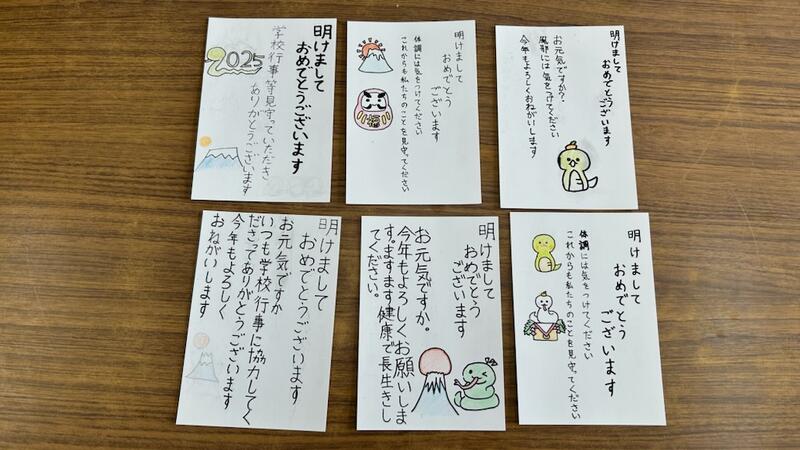 明けまして
おめでとうございます
学校行事等見守っていただき
ありがとうございます
2025
明けまして
おめでとう
ございます
体調には気をつけてください
これからも私たちのことを見守ってください
福
明けまして
おめでとうございます
お元気ですか?
風邪には気をつけてください
今年もよろしくおねがいします
明けまして
おめでとうございます
お元気ですか
いつも学校行事に協力してく
ださってありがとうございます
今年もよろしく
おねがいします
明けまして
おめでとう
ございます
お元気ですか。
今年もよろしくお願いしま
す。ますます健康で長生きし
てください。
明けまして
おめでとう
ございます
体調には気をつけてください
これからも私たちのことを見守ってください